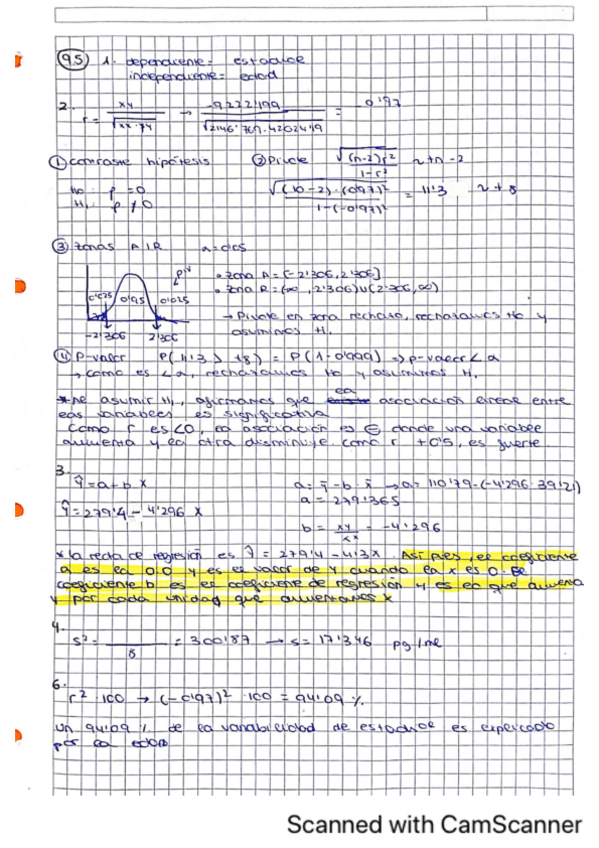 95 1. dependiente = estadiol
independiente = edad
2. r = xy / √xx·yy → -9222'199 / √2146'769·42024'19 = -0'97
① contraste hipótesis ② Pivote √(n-2)r² / 1-r² ~ tn-2
H0: ρ = 0
H1: ρ ≠ 0
√(10-2)·(0'97)² / 1-(-0'97)² = 11'3 ~ t8
③ zonas A/R α = 0'05
• zona A = [-2'306, 2'306]
• zona R = (∞, 2'306) ∪ (2'306, ∞)
0'025 0'95 0'025 PIV
-2'306 2'306
→ Pivote en zona rechazo, rechazamos H0 y
asumimos H1
④ P-valor P(11'3 > t8) = P(1-0'999) => p-valor < α
→ como es < α, rechazamos H0 y asumimos H1.
* Al asumir H1, afirmamos que la asociación lineal entre
las variables es significativa
Como r es < 0, la asociación es ⊖ donde una variable
aumenta y la otra disminuye. como r + 0'5, es fuerte.
3.
ŷ = a + b x
a = ȳ - b · x̄ → a = 110'79 - (-4'296 · 39'21)
a = 279'365
ŷ = 279'4 - 4'296 x
b = xy / xx = -4'296
* la recta de regresión es ŷ = 279'4 - 4'3x. Así pues, el coeficiente
a es la 0.0 y es el valor de y cuando la x es 0. El
coeficiente b es el coeficiente de regresión y es lo que aumenta
y por cada unidad que aumentamos x
4.
s² = / 8 = 300'87 → s = 17'346 pg/ml
6.
r² · 100 → (-0'97)² · 100 = 94'09 %.
Un 94'09 % de la variabilidad de estadiol es explicado
por la edad
Scanned with CamScanner